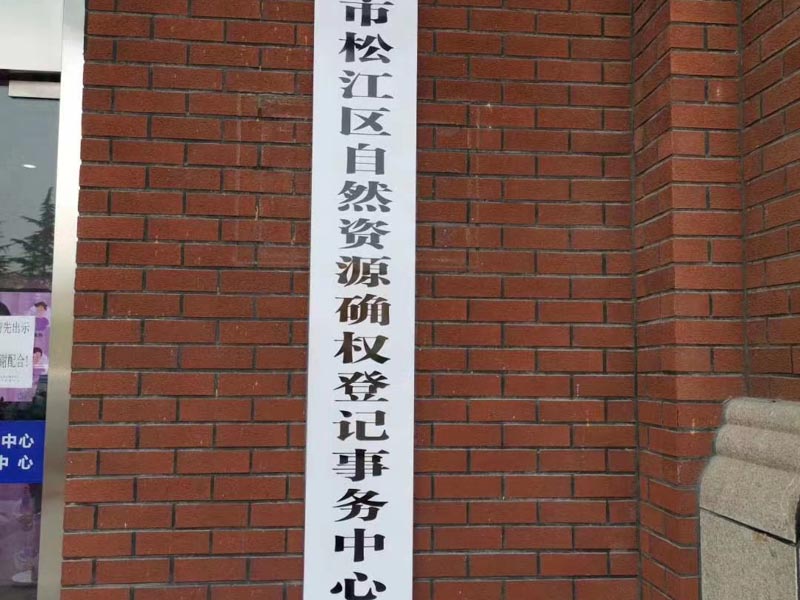 市松江区自然资源确权登记事务中心
先出示
谢配合!
中心
中心